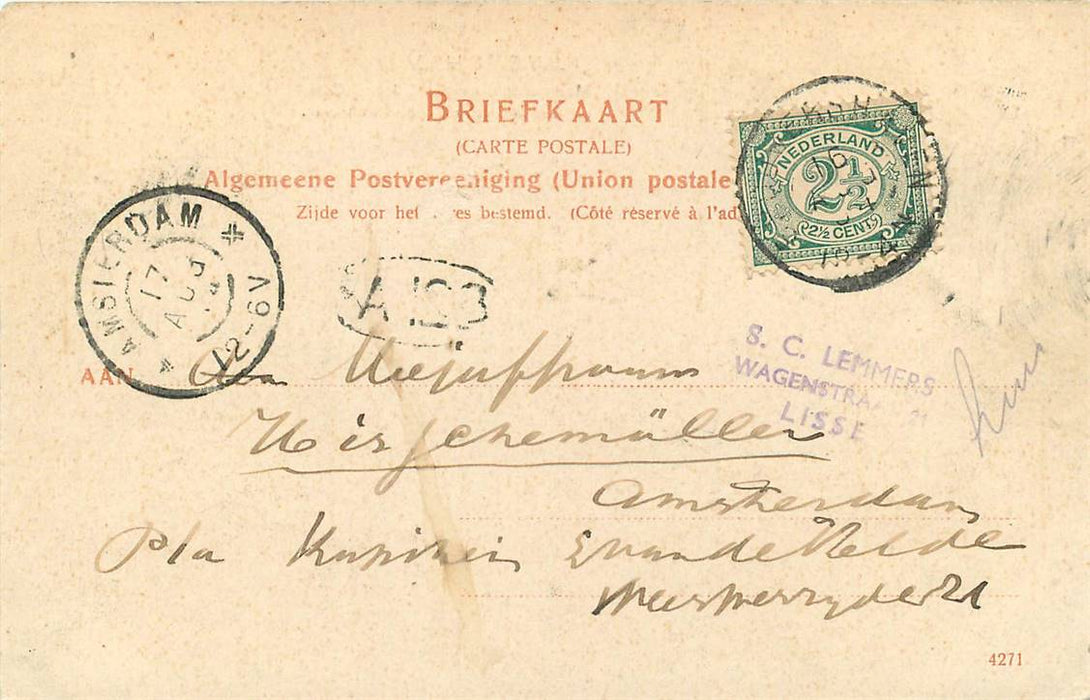 BRIEFKAART
(CARTE POSTALE)
Algemeene Postvereeniging (Union postale
Zijde voor het . res bestemd. (Côté réservé à l'ad
NEDERLAND
2½
2½ CENT
AMSTERDAM
17
AUG
12-6V
S. C. LEMMERS
WAGENSTRAA 21
LISSE
AAN Aan Mejuffrouw
Amsterdam
p/a E van de Velde
4271